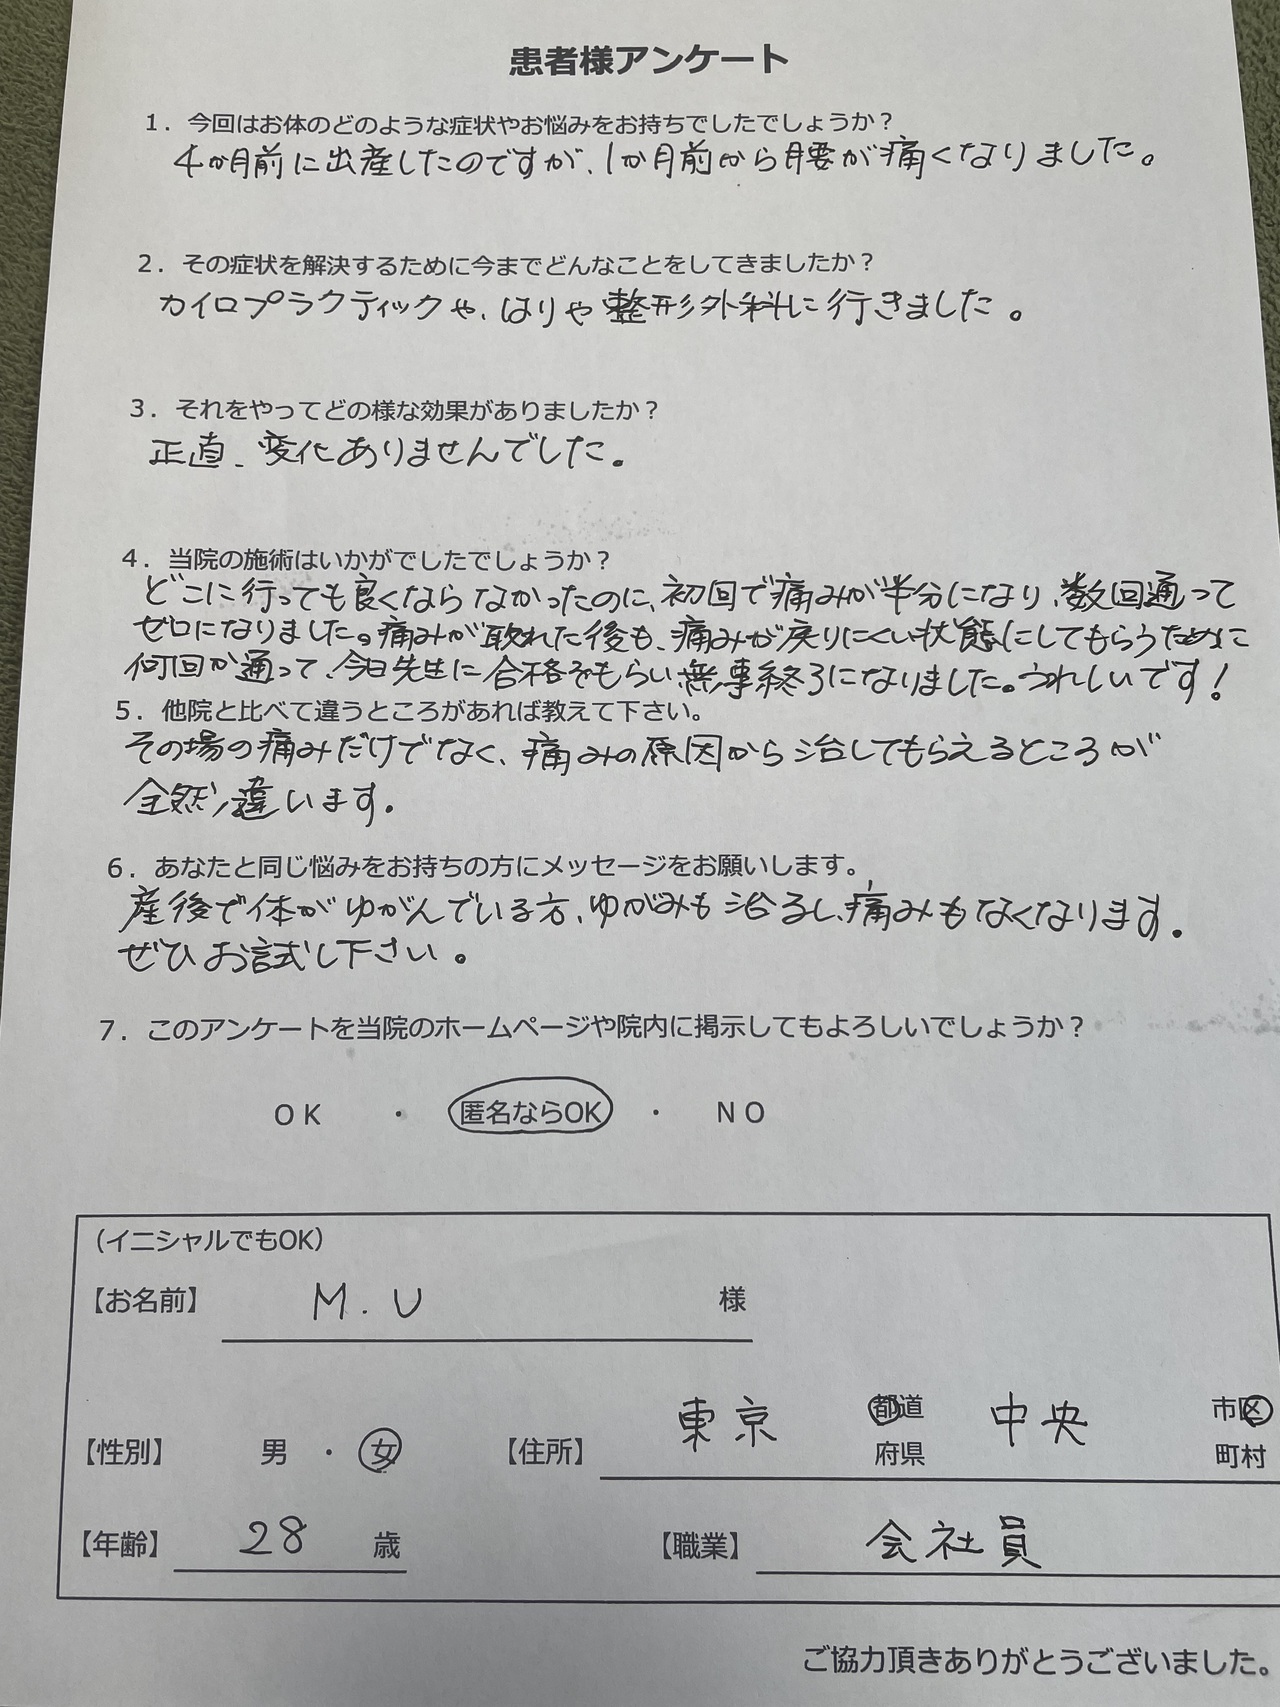 患者様アンケート
1．今回はお体のどのような症状やお悩みをお持ちでしたでしょうか？
4か月前に出産したのですが、1か月前から腰が痛くなりました。
2．その症状を解決するために今までどんなことをしてきましたか？
カイロプラクティックや、はりや整形外科に行きました。
3．それをやってどの様な効果がありましたか？
正直、変化ありませんでした。
4．当院の施術はいかがでしたでしょうか？
どこに行っても良くならなかったのに、初回で痛みが半分になり、数回通って
ゼロになりました。痛みが取れた後も、痛みが戻りにくい状態にしてもらうために
何回か通って、今日先生に合格をもらい無事終了になりました。うれしいです！
5．他院と比べて違うところがあれば教えて下さい。
その場の痛みだけでなく、痛みの原因から治してもらえるところが
全然違います。
6．あなたと同じ悩みをお持ちの方にメッセージをお願いします。
産後で体がゆがんでいる方、ゆがみも治るし、痛みもなくなります。
ぜひお試し下さい。
7．このアンケートを当院のホームページや院内に掲示してもよろしいでしょうか？
OK ・ 匿名ならOK ・ NO
（イニシャルでもOK）
【お名前】 M.U 様
【性別】 男 ・ 女 【住所】 東京 都道府県 中央 市区町村
【年齢】 28 歳 【職業】 会社員
ご協力頂きありがとうございました。